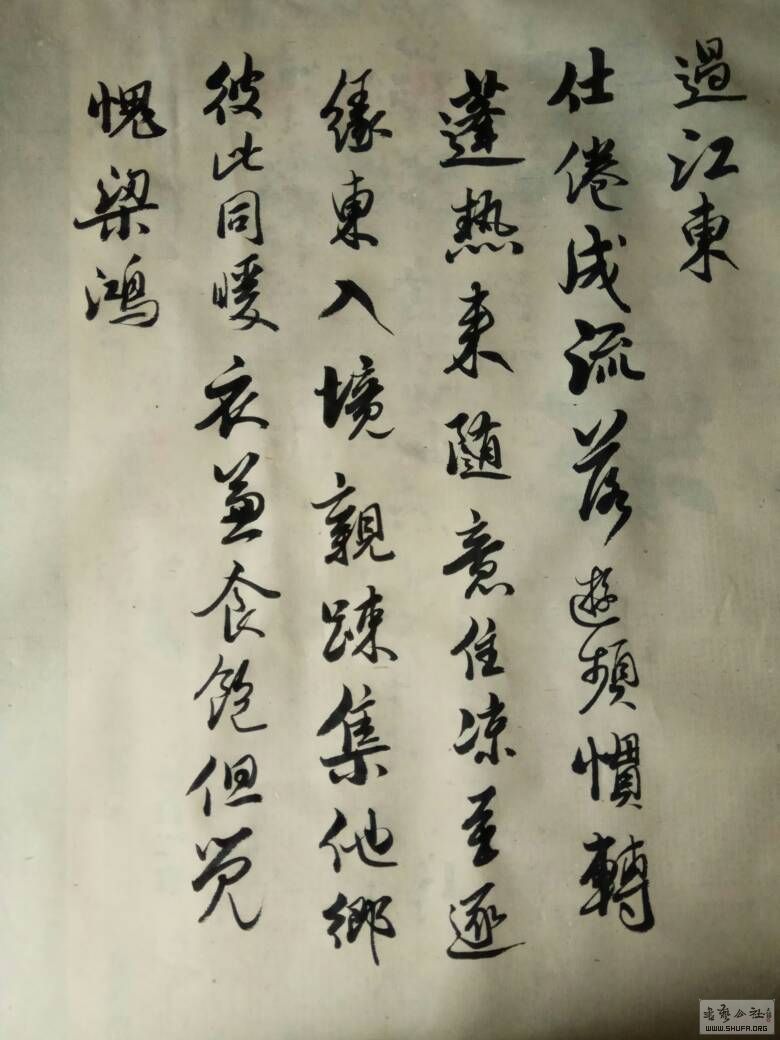 過江東
仕倦成流落遊頻慣轉
蓬熱来随意住凉至逐
緣東入境親踈集他鄉
彼此同暖衣兼食飽但覺
愧梁鴻
書藝公社
WWW.SHUFA.ORG